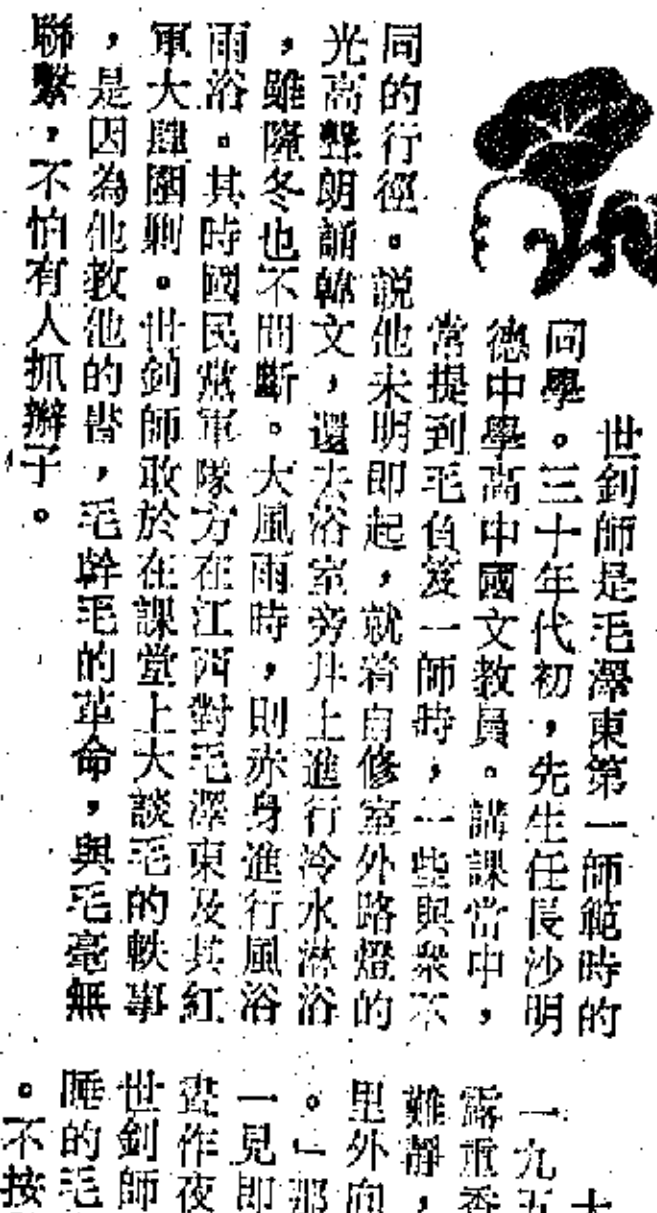 世釗師是毛澤東第一師範時的
同學。三十年代初,先生任長沙明
德中學高中國文教員。講課當中,
常提到毛負笈一師時,一些與衆不
同的行徑。説他未明即起,就着自修室外路燈的
光高聲朗誦韓文,還去浴室旁井上進行冷水淋浴
,雖隆冬也不間斷。大風雨時,則赤身進行風浴
雨浴。其時國民黨軍隊方在江西對毛澤東及其紅
軍大肆圍剿。世釗師敢於在課堂上大談毛的軼事
,是因為他教他的書,毛幹毛的革命,與毛毫無
聯繫,不怕有人抓辮子。
一九五
露重香
難靜,
里外向
。」那
一見即
晝作夜
世釗師
睡的毛
。不按